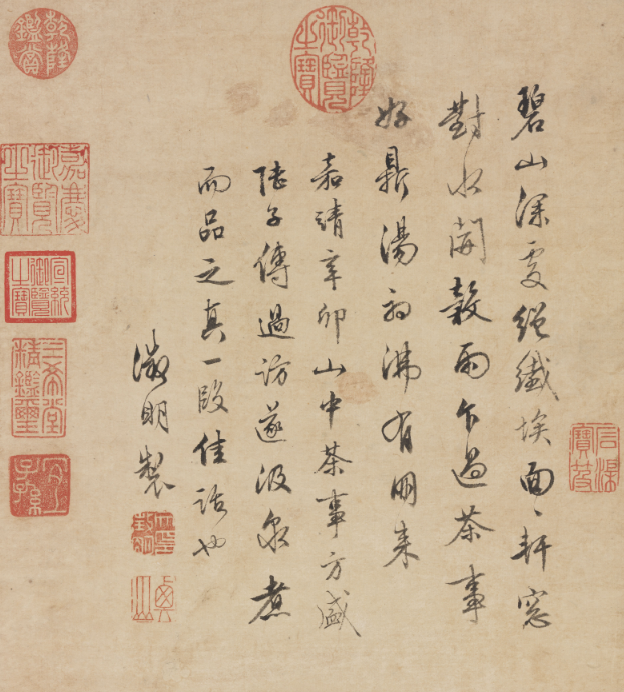 碧山深處絕纖埃面々軒窓
對水開穀雨乍過茶事
好鼎湯初沸有朋來
嘉靖辛卯山中茶事方盛
陸子傳過訪遂汲泉煮
而品之真一段佳話也
徵明製
乾隆御覽之寶
乾隆鑑賞
嘉慶御覽之寶
宣統御覽之寶
三希堂精鑑璽
宜子孫